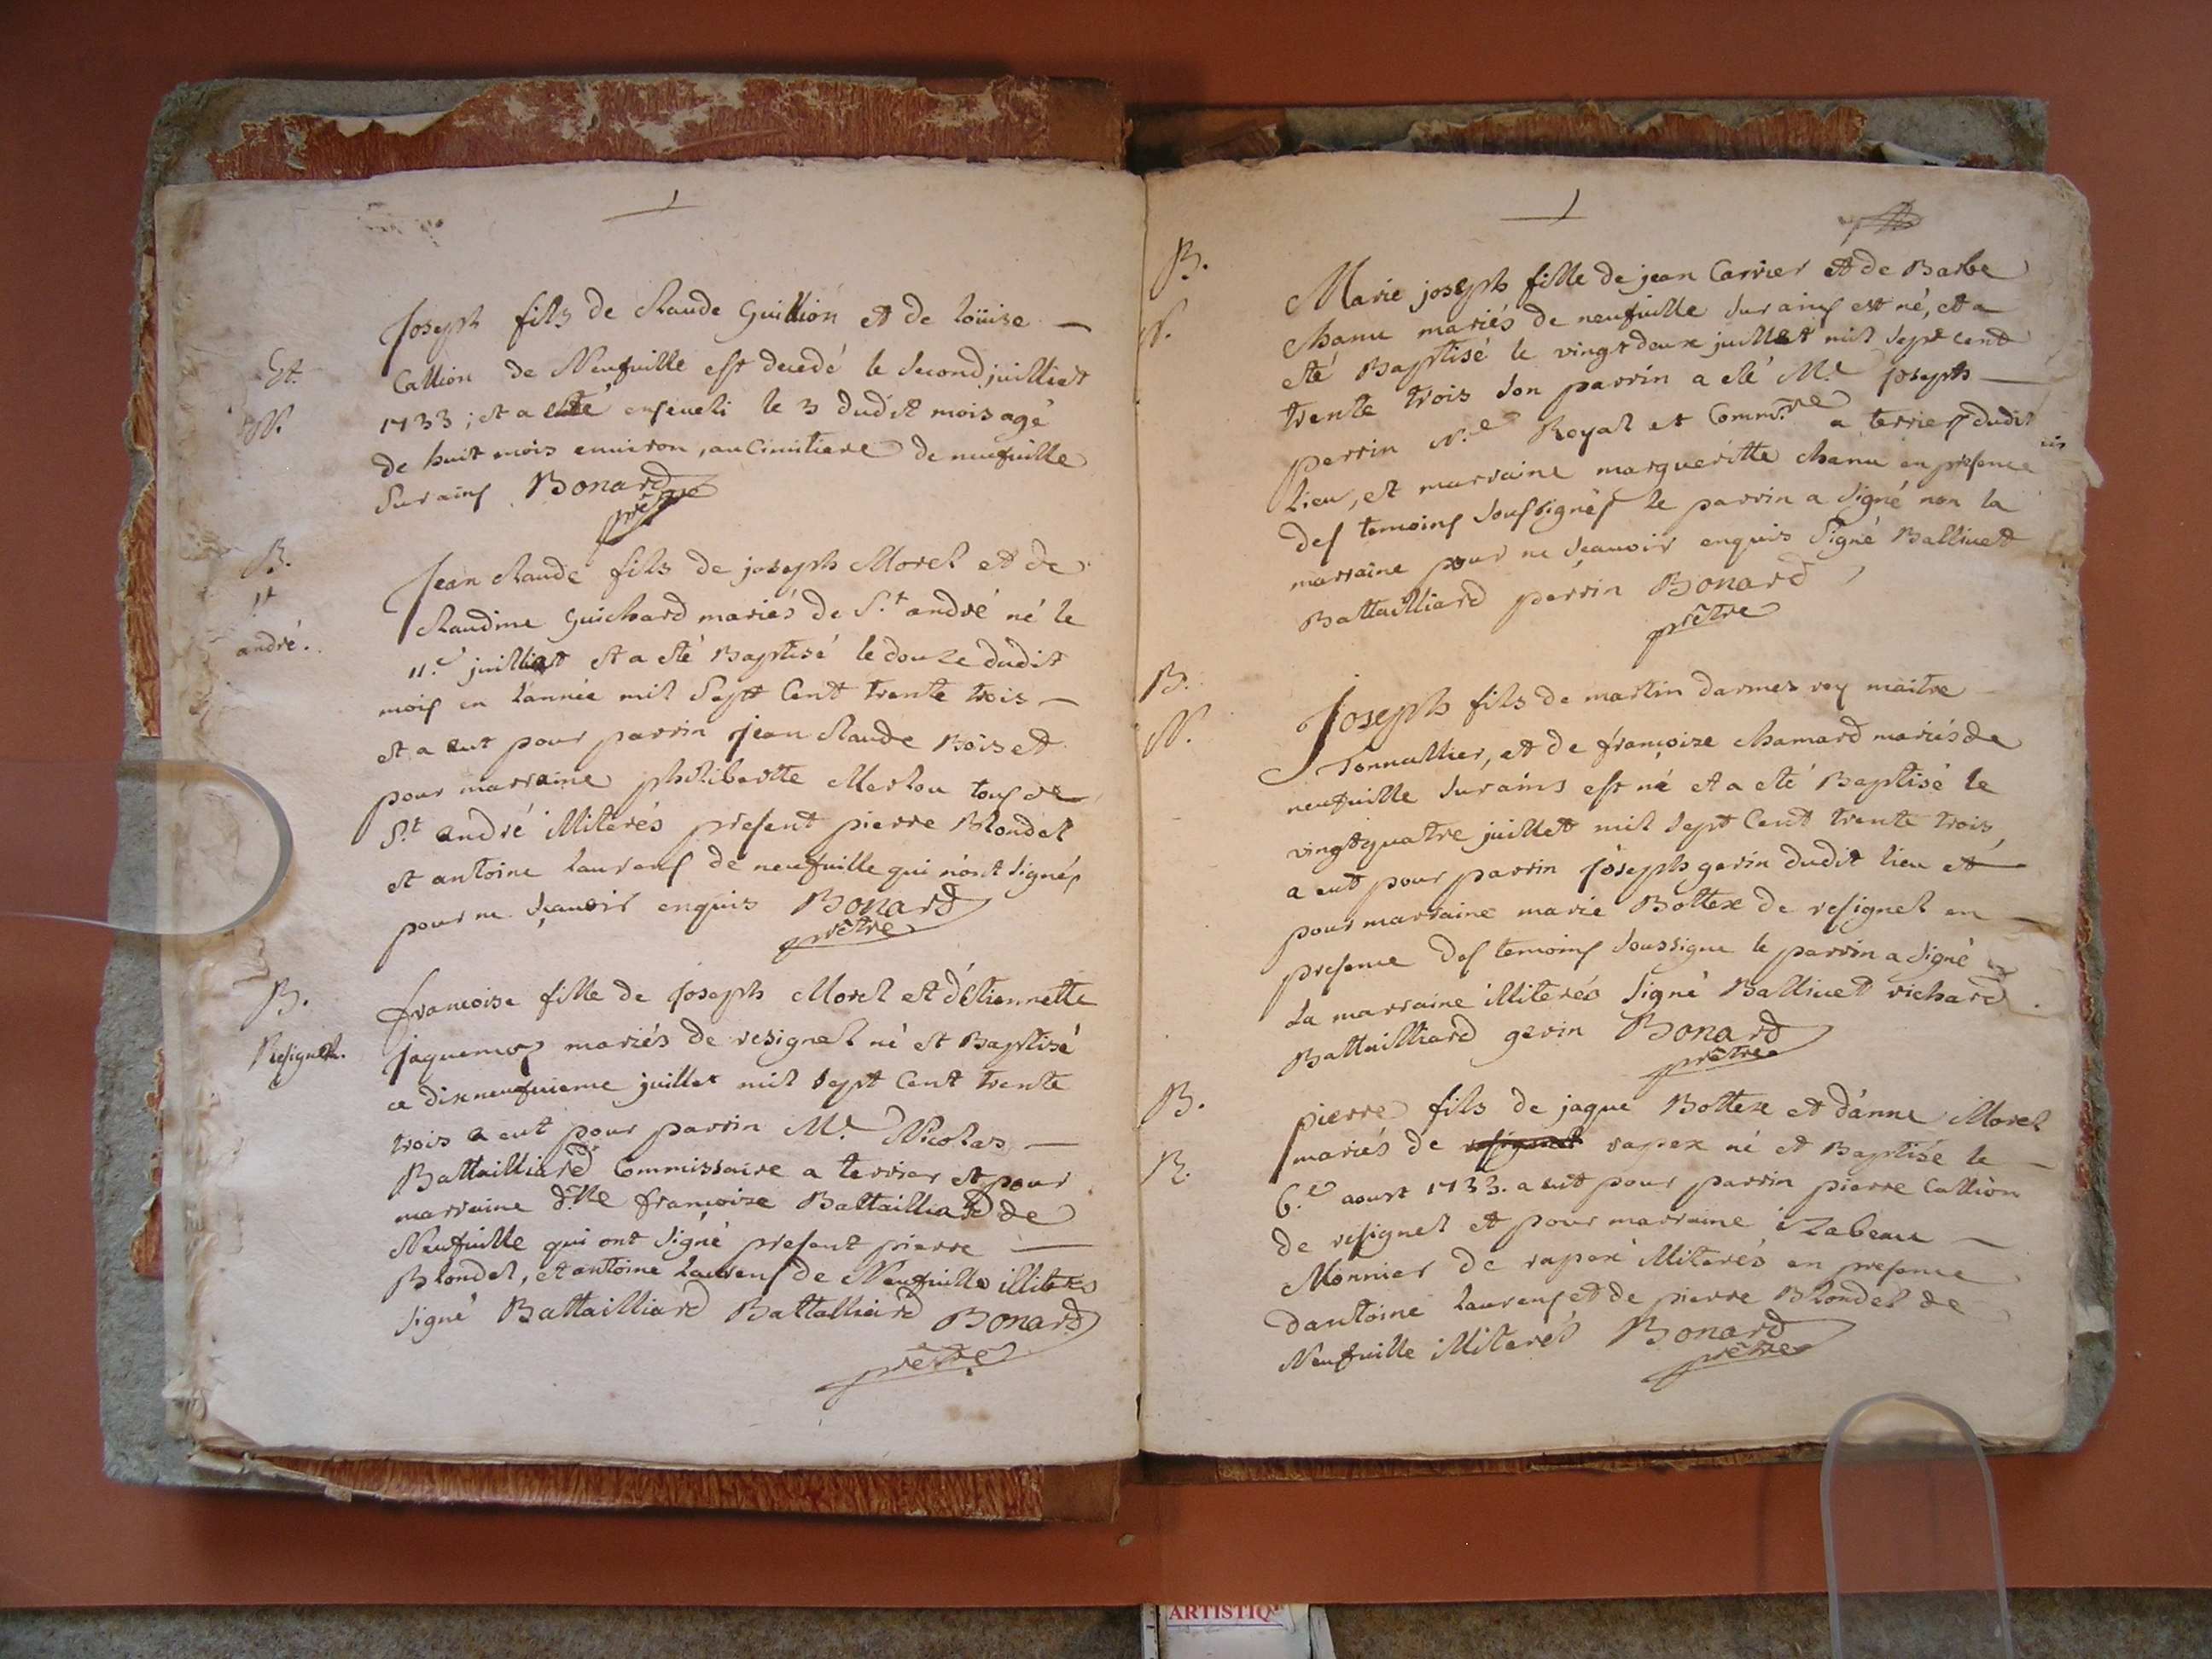 Joseph fils de Claude Guillion et de Loüise —
St. Callion de Neufuille est decedé le second juilliet
N. 1733; et a etté enseueli le 3 dudit mois agé
de huit mois enuiron, au Cimitiere de neufuille
Sur ains Bonard
prêtre
B. Jean Claude fils de joseph Morel et de
St Claudine Guichard mariés de St. andré né le
andré. 11.e juilliet et a eté Baptisé le douze dudit
mois en Lannée mil Sept Cent trente trois —
et a eut pour parrin jean Claude Boiset
pour marraine philiberte Merlou tous de
St. andré illiterés present pierre Blondel
et antoine Laurens de neufuille qui n'ont signés
pour ne sçauoir enquis Bonard
prêtre
B. francoise fille de Joseph Morel et d'Etiennette
Resignel. jaquemos mariés de resignel né et Baptisé
ce dixneufuieme juillet mil sept Cent trente
trois a eut pour parrin Mr. Nicolas —
Battailliard Commissaire a terrier et pour
marraine d.lle francoise Battailliard de
Neufuille qui ont signé present pierre —
Blondel, et antoine Laurens de Neufuille illiterés
signé Battailliard Battalliard Bonard
prêtre
B. Marie joseph fille de jean Carrier et de Barbe
N. Chanu mariés de neufuille sur ains est né, et a
eté Baptisé le vingt deux juillet mil sept cent
trente trois son parrin a eté Me. joseph —
perrin N.re Royal et Comm.re a terriers dudit
lieu, et marraine margueritte chanu en presence
des temoins soussignés le parrin a signé non la
marraine pour ne sçauoir enquis Signé Balliuet
Battailliard perrin Bonard
prêtre
B. Joseph fils de martin darmes rey maitre
N. Tonnallier, et de francoise chamard mariés de
neufuille sur ains est né et a eté Baptisé le
vingtquatre juillet mil sept Cent trente trois,
a eut pour parrin Joseph gerin dudit lieu et
pour marraine marie Bottex de resignel en
presence des temoins soussigne le parrin a signé
La marraine illiterés signé Balliuet richard
Battailliard gerin Bonard
prêtre
B. pierre fils de jaque Bottex et d'anne Morel
R. mariés de resignel rapex né et Baptisé le —
6.e aoust 1733. a eut pour parrin pierre Callion
de resignel et pour marraine Izabeau —
Monnier de rapex illiterés en presence
d'antoine Laurens et de pierre Blondel de
Neufuille illiterés Bonard
prêtre
ARTISTIQ